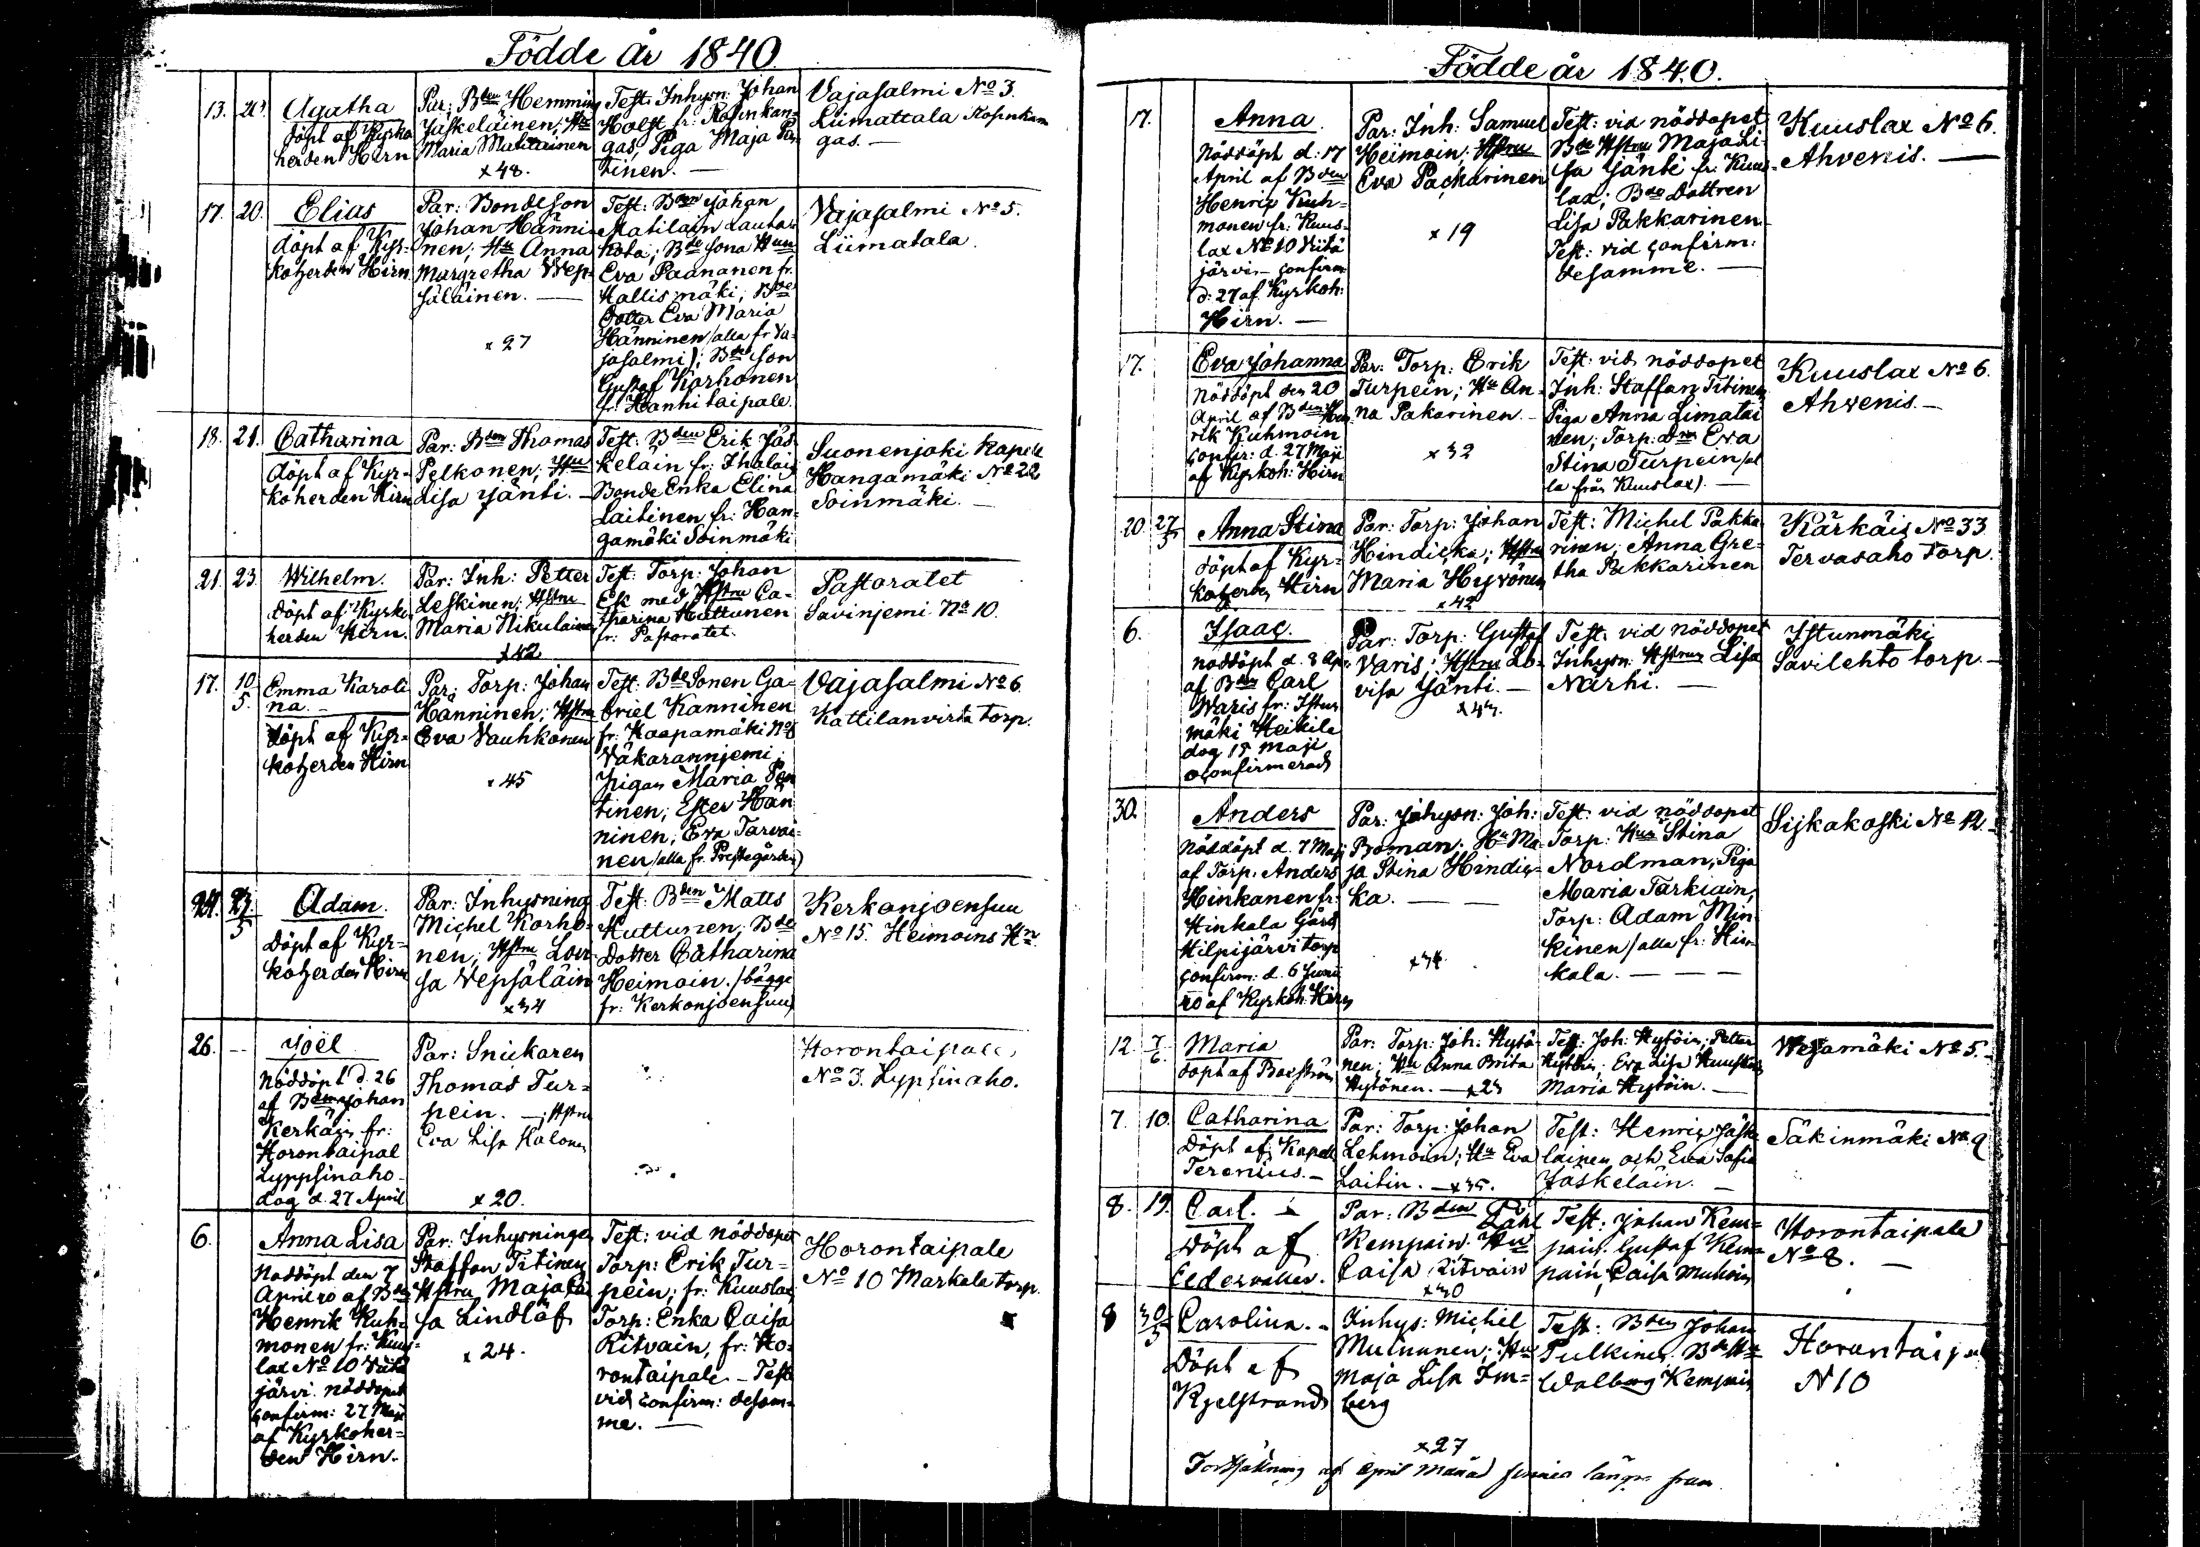 Födde år 1840
13. 20
Agatha
döpt af Kyrko
herden Hirn
Par: Bden Hemming
Jäskeläinen; Hu
Maria Matilainen
x48.
Test: Inhysn: Johan
Holst fr: Rosinkan-
gas, Piga Maja Pen
tinen. —
Vajasalmi No 3.
Liimattala Rosinkan
gas. —
17. 20.
Elias
döpt af Kyr-
koherden Hirn
Par: Bondeson
Johan Hänni-
nen; Hu Anna
Margretha Wep-
säläinen. —
x 27
Test: Bden Johan
Matilain Lauta-
kota; Bde sona Hun
Eva Paananen fr.
Kallismäki; Bde
Dotter Eva Maria
Hänninen /alla fr Va-
jasalmi); Bde son
Gustaf Korhonen
fr: Hanhitaipale.
Vajasalmi No 5.
Liimatala.
18. 21.
Catharina
döpt af Kyr-
koherden Hirn
Par: Bden Thomas
Pelkonen; Hu
Lisa Jänti. —
Test: Bden Erik Jäs
keläin fr: Jhalais
Bonde Enka Elina
Laitinen fr: Han-
gamäki Soinmäki
Suonenjoki Kapell
Hangamäki No 22
Soinmäki. —
21. 23
Wilhelm.
döpt af Kyrko
herden Hirn.
Par: Inh: Petter
Leskinen; Hstru
Maria Nikulainen
x42
Test: Torp: Johan
Ek med Hstru Ca-
tharina Huttunen
fr: Pastoratet.
Pastoratet
Savinjemi No 10.
17. 10/5
Emma Karoli
na. —
döpt af Kyr-
koherden Hirn
Par: Torp: Johan
Hänninen; Hstru
Eva Vauhkonen
x 45
Test: Bde Sonen Ga-
briel Kanninen
fr: Haapamäki No 8
Väkaranniemi;
Pigan Maria Pen
tinen; Ester Hän
ninen; Eva Tarvai-
nen /alla fr. Prestegården)
Vajasalmi No 6.
Kattilanvirta torp.
24. 27/5
Adam.
döpt af Kyr-
koherden Hirn
Par: Inhysning
Michel Korho-
nen; Hstru Lovi
sa Vepsäläin
x34
Test: Bden Matts
Huttunen, Bde
Dotter Catharina
Heimoin. /bägge
fr: Kerkonjoensuu)
Kerkonjoensuu
No 15. Heimoins Hn.
26. --
Joël
Nöddöpt d. 26
af Bdens Johan
Kerkäin fr:
Horontaipal
Lyppsinaho
dag d. 27 April
Par: Snickaren
Thomas Tur-
pein. —; Hstru
Eva Lisa Halonen
x 20.
Horontaipale
No 3. Lyppsinaho.
6.
Anna Lisa
Nöddöpt den 7
Aprilro af Bden
Henrik Kuh-
monen fr: Kuus-
lax No 10 Viita
järvi. nöddopet
confirm: 27 Maji
af Kyrkoher-
den Hirn.
Par: Inhysningen
Staffan Titinen
Hstru Maja Cai
sa Lindlöf
x 24.
Test: vid nöddopet
Torp: Erik Tur-
pein; fr: Kuuslax,
Torp: Enka Caisa
Ritvain, fr: Ho-
rontaipale. — Test:
vid confirm: desam-
me. —
Horontaipale
No 10 Markala torp.
Födde år 1840.
17.
Anna
Nöddöpt d. 17
April af Bden
Henric Kuh-
monen fr: Kuus-
lax No 10 Viita
järvi. — confirm
d: 27 af Kyrkoh:
Hirn. —
Par: Inh: Samuel
Heimoin; Hstru
Eva Packarinen
x 19
Test: vid nöddopet
Bde Hstru Maja Li-
sa Jänti fr. Kuus-
lax; Bde Dottren
Lisa Pakkarinen
Test: vid confirm:
desamme. —
Kuuslax No 6.
Ahvenis. —
17.
Eva Johanna
Nöddöpt den 20
April af Bden Hen
rik Kuhmoin
confir: d. 27 Maji
af Kyrkoh: Hirn
Par: Torp: Erik
Turpein; Hu An-
na Pakarinen. —
x32
Test: vid nöddopet
Inh: Staffan Titinen
Piga Anna Limatai
nen; Torp: Dtr Eva
Stina Turpein /al
la från Kuuslax). —
Kuuslax No 6.
Ahvenis. —
20. 27/5
Anna Stina
döpt af Kyr-
koherden Hirn
Par: Torp: Johan
Hindicka; Hstru
Maria Hyvönen
x42
Test: Michel Pakka
rinen; Anna Gre-
tha Pakkarinen
Kärkäis No 33
Tervasaho Torp.
6.
Isaac.
nöddöpt d. 8 Apr:
af Bden Carl
Waris fr: Istun
mäki Heikile
dog 15 Maji
oconfirmerad
Par: Torp: Gustaf
Varis; Hstru Lo-
visa Jänti. —
Test: vid nöddopet
Inhysn: Hstrun Lisa
Närhi. —
Istunmäki
Savilehto torp. —
30.
Anders
Nöddöpt d. 7 Maji
af Torp: Anders
Hinkanen fr:
Hinkala Gård
Hilpijärvi torp
confirm: d. 6 Junii
ro af Kyrkoh: Hirn
Par: Inhysn: Joh:
Boman. Hu Ma-
ja Stina Hindic-
ka. — —
x34
Test: vid nöddopet
Torp: Hun Stina
Nordman, Piga
Maria Tarkiain,
Torp: Adam Min
kinen /alla fr: Hin-
kala. — — —
Sijkakoski No 12. —
12. 7/6
Maria
döpt af Bacström
Par: Torp: Joh: Hytö-
nen; Hu Anna Brita
Hytönen. —
Test: Joh: Hytöin; Petter
Hytöin; Eva Lisa
Maria Hytöin. —
Wesamäki No 5. —
7. 10.
Catharina
Döpt af Kapell
Terenius. —
Par: Torp: Johan
Lehmoin; Hu Eva
Laitin. — x35.
Test: Henric Jäske
lainen och Eva Sofia
Jäskeläin. —
Säkinmäki No 9
8. 19.
Carl.
Döpt af
Eldervalter.
Par: Bden Påhl
Kempain, Hu
Caisa Ritvain
x30
Test: Johan Kem-
pain. Gustaf Kem-
pain, Caisa Muhoin
Horontaipale
No 8. —
8 30/5
Carolina. —
Döpt af
Kjelstrand
Inhys: Michel
Mulnunen; Hu
Maja Lisa Im-
berg
x27
Test: Bden Johan
Pulkinen. Bde Hu
Walborg Kempain
Horontaipale
N 10
Fortsätning af April månad finnes längre fram